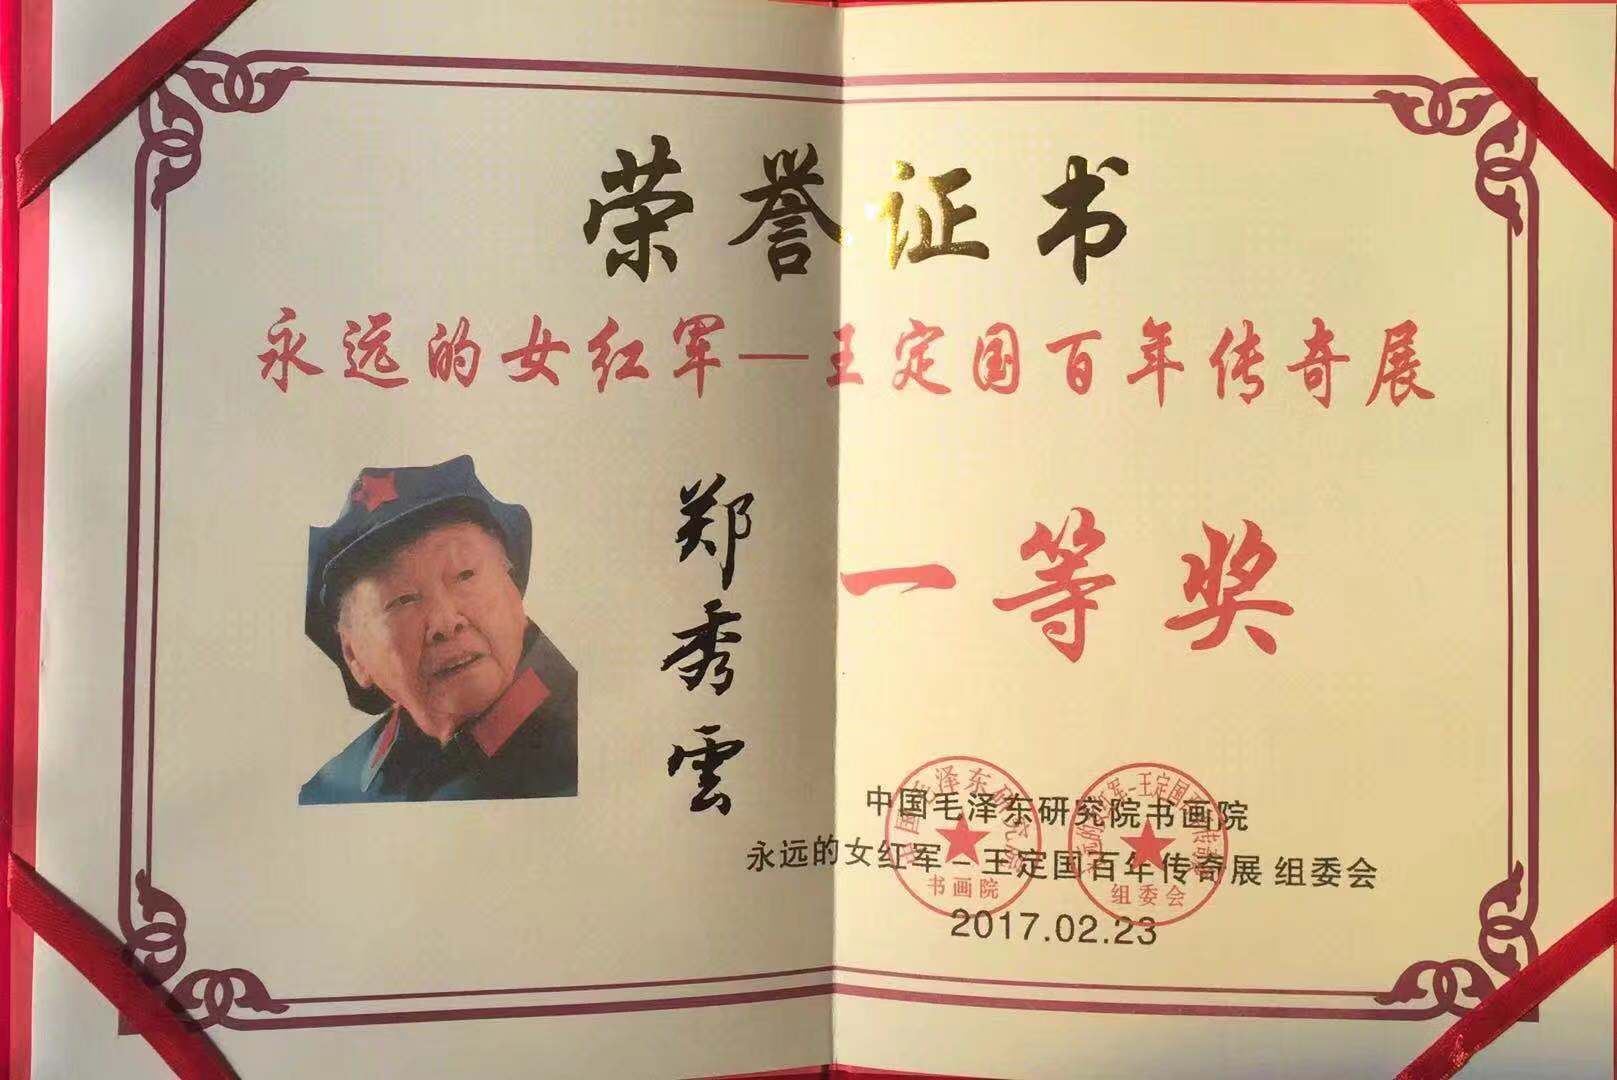 荣誉证书
永远的女红军—王定国百年传奇展
郑秀雲
一等奖
中国毛泽东研究院书画院
永远的女红军－王定国百年传奇展 组委会
2017.02.23
书画院
组委会